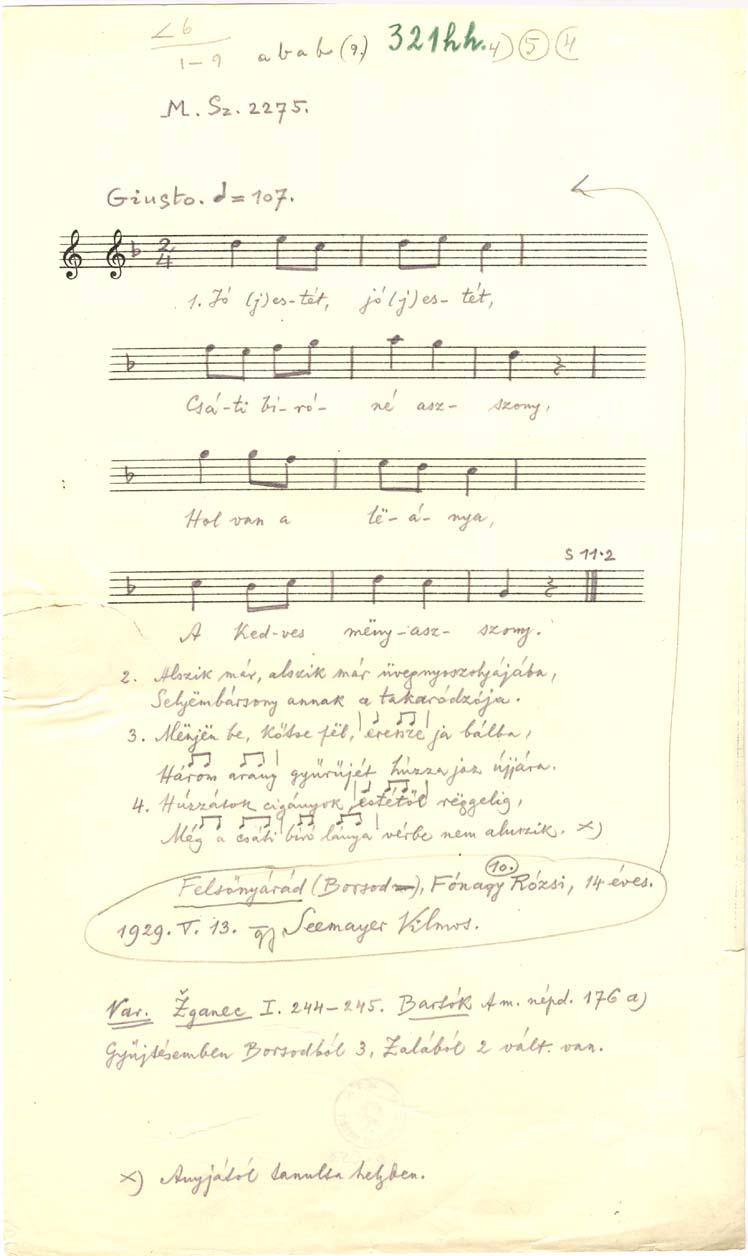 ∠6
1–9 abab (9.) 321hh. 4) 5 4
M. Sz. 2275.
Giusto. ♩= 107.
2
4
1. Jó (j)es-tét, jó (j)es-tét,
Csá-ti bi-ró- né asz- szony,
Hol van a lë-á- nya,
S 11.2
A Ked-ves mëny-asz- szony.
2. Alszik már, alszik már üvegnyoszolyájába,
Selyëmbársony annak a takaródzója.
3. Mënjën be, kőtse fël, eressze ja bálba,
Három arany gyürüjét húzza jaz újjára.
4. Húzzátok cigányok estétől rëggelig,
Még a csáti bíró lánya vérbe nem aluszik. x)
Felsőnyárád (Borsod), Fónagy Rózsi, 14 éves.
10.
1929. V. 13. gy Seemayer Vilmos.
Var. Žganec I. 244–245. Bartók A m. népd. 176 a)
Gyüjtésemben Borsodból 3, Zalából 2 vált. van.
x) Anyjától tanulta helyben.